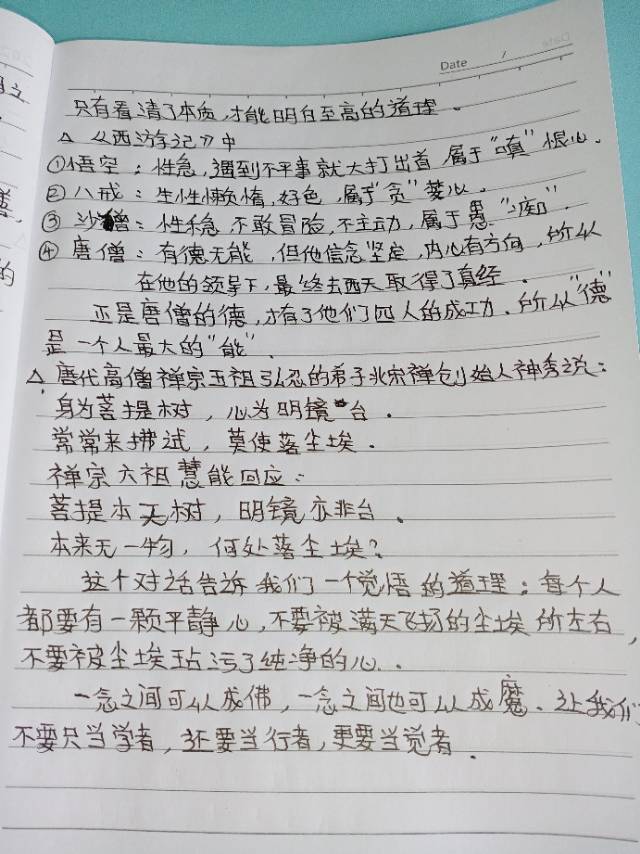 Date /
只有看清了本质,才能明白至高的道理。
△ 《西游记》中
①悟空:性急,遇到不平事就大打出首,属于"嗔"恨心.
②八戒:生性懒惰,好色,属于"贪"婪心.
③沙僧:性稳急,不敢冒险,不主动,属于愚"痴".
④唐僧:有德无能,但他信念坚定,内心有方向,所以
在他的领导下,最终去西天取得了真经.
正是唐僧的德,才有了他们四人的成功.所以"德"
是一个人最大的"能".
△唐代高僧禅宗五祖弘忍的弟子北宗禅创始人神秀说:
身为菩提树,心为明镜台.
常常来拂试,莫使落尘埃.
禅宗六祖慧能回应:
菩提本无树,明镜亦非台.
本来无一物,何处落尘埃?
这个对话告诉我们一个觉悟的道理:每个人
都要有一颗平静心,不要被满天飞扬的尘埃所左右,
不要被尘埃玷污了纯净的心..
一念之间可以成佛,一念之间也可以成魔.让我们
不要只当学者,还要当行者,更要当觉者.